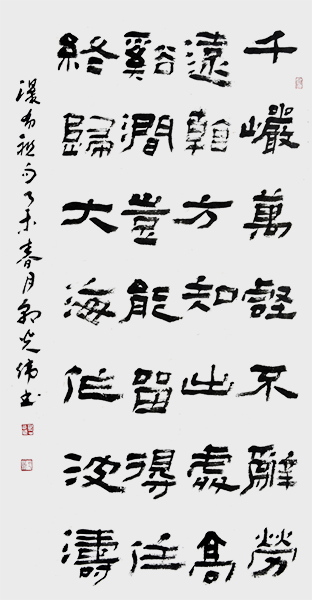 千巖萬壑不辭勞
遠看方知出處高
谿澗豈能留得住
終歸大海作波濤
瀑布聯句丁未春月偉書